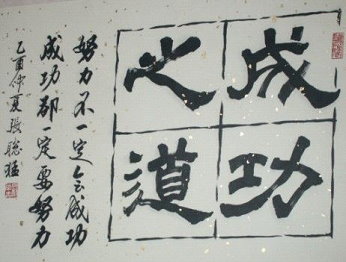 成功
之道
努力不一定会成功
成功都一定要努力
乙酉仲夏張聪猛